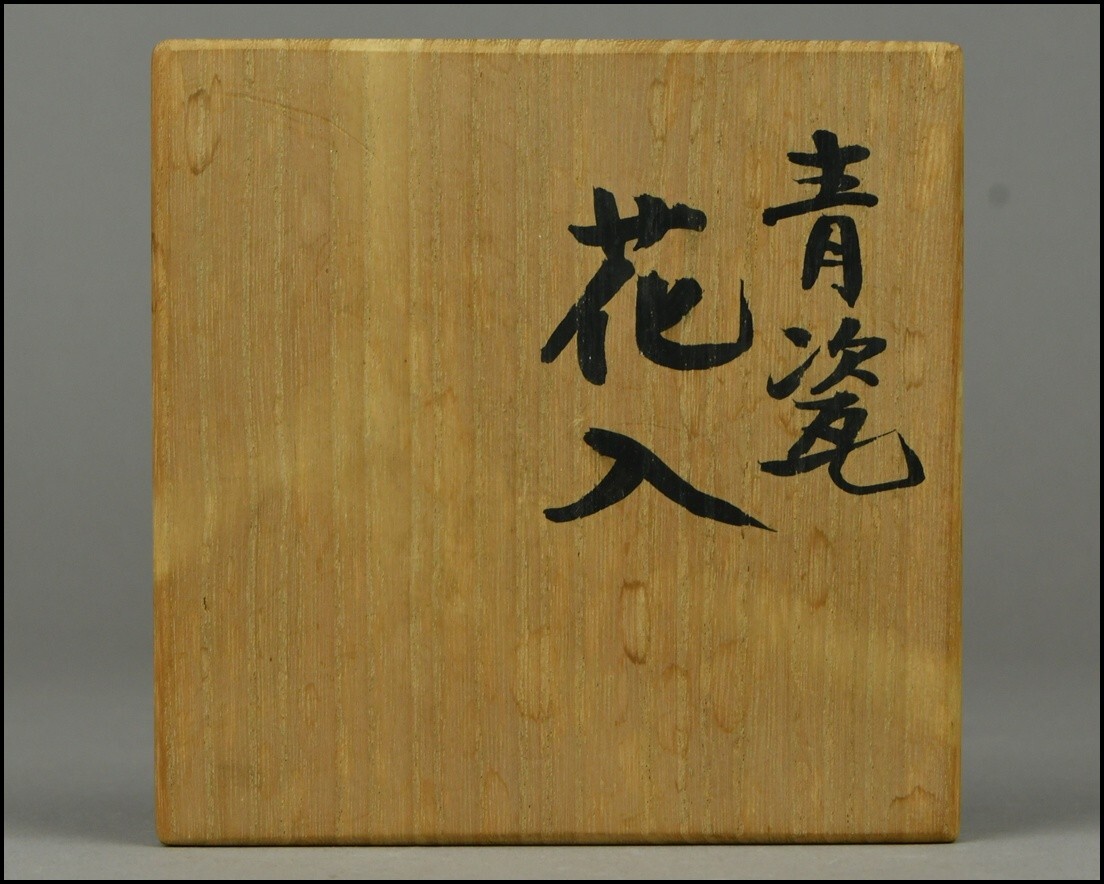 青瓷
花入